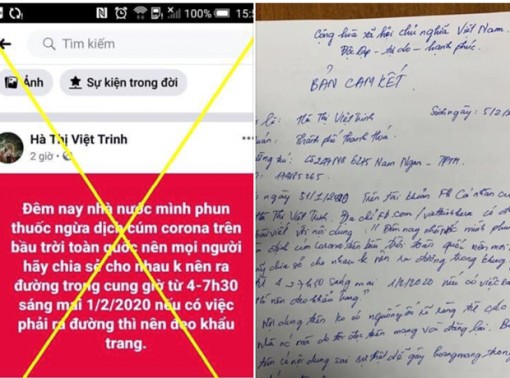 100% 15:
Tìm kiếm
Ảnh
Sự kiện trong đời
Hà Thị Việt Trinh
2 giờ
Đêm nay nhà nước mình phun
thuốc ngừa dịch cúm corona trên
bầu trời toàn quốc nên mọi người
hãy chia sẻ cho nhau k nên ra
đường trong cung giờ từ 4-7h30
sáng mai 1/2/2020 nếu có việc
phải ra đường thì nên đeo khẩu
trang.
Cộng hòa xã hội chủ nghĩa Việt Nam.
Độc lập - tự do - hạnh phúc.
BẢN CAM KẾT.
Hà Thị Việt Trinh Sinh ngày: 5/2
Thành phố Thanh Hoá.
Nam Ngạn - TPTH.
ngày 31/1/2020 Trên tài khoản FB cá nhân
Thị Việt Trinh.
viết với nội dung: "Đêm nay nhà nước mình phun
dịch cúm corona trên bầu trời toàn quốc nên mọi
chia sẻ cho nhau k nên ra đường trong khung
4-7h30 sáng mai 1/2/2020 nếu có việc
thì nên đeo khẩu trang."
Nội dung trên ko có nguồn gốc rõ ràng
trên mạng và đăng lại.
nội dung sai sự thật dễ gây hoang mang trong